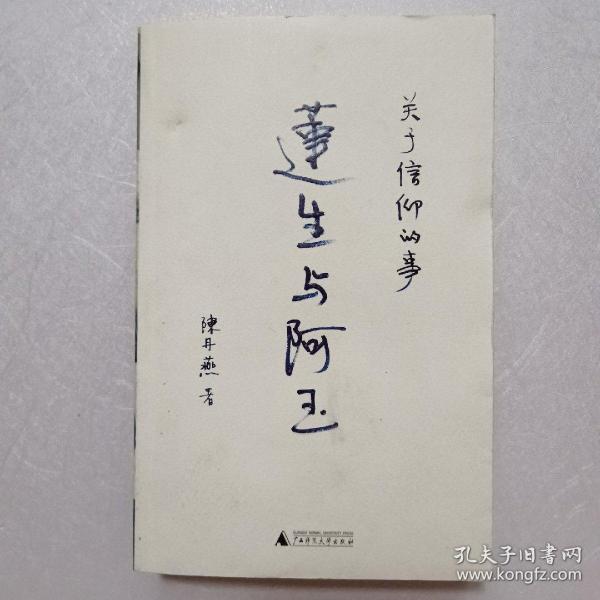 关于信仰的事
蓮生与阿玉
陳丹燕 著
GUANGXI NORMAL UNIVERSITY PRESS
广西师范大学出版社
孔夫子旧書网
www.kongfz.com